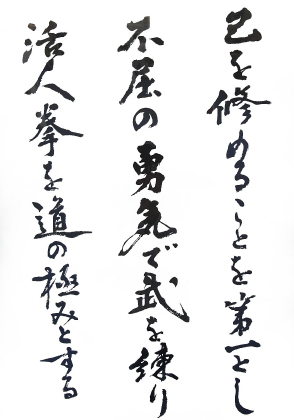 己を修めることを第一とし
不屈の勇気で武を練り
活人拳を道の極みとする